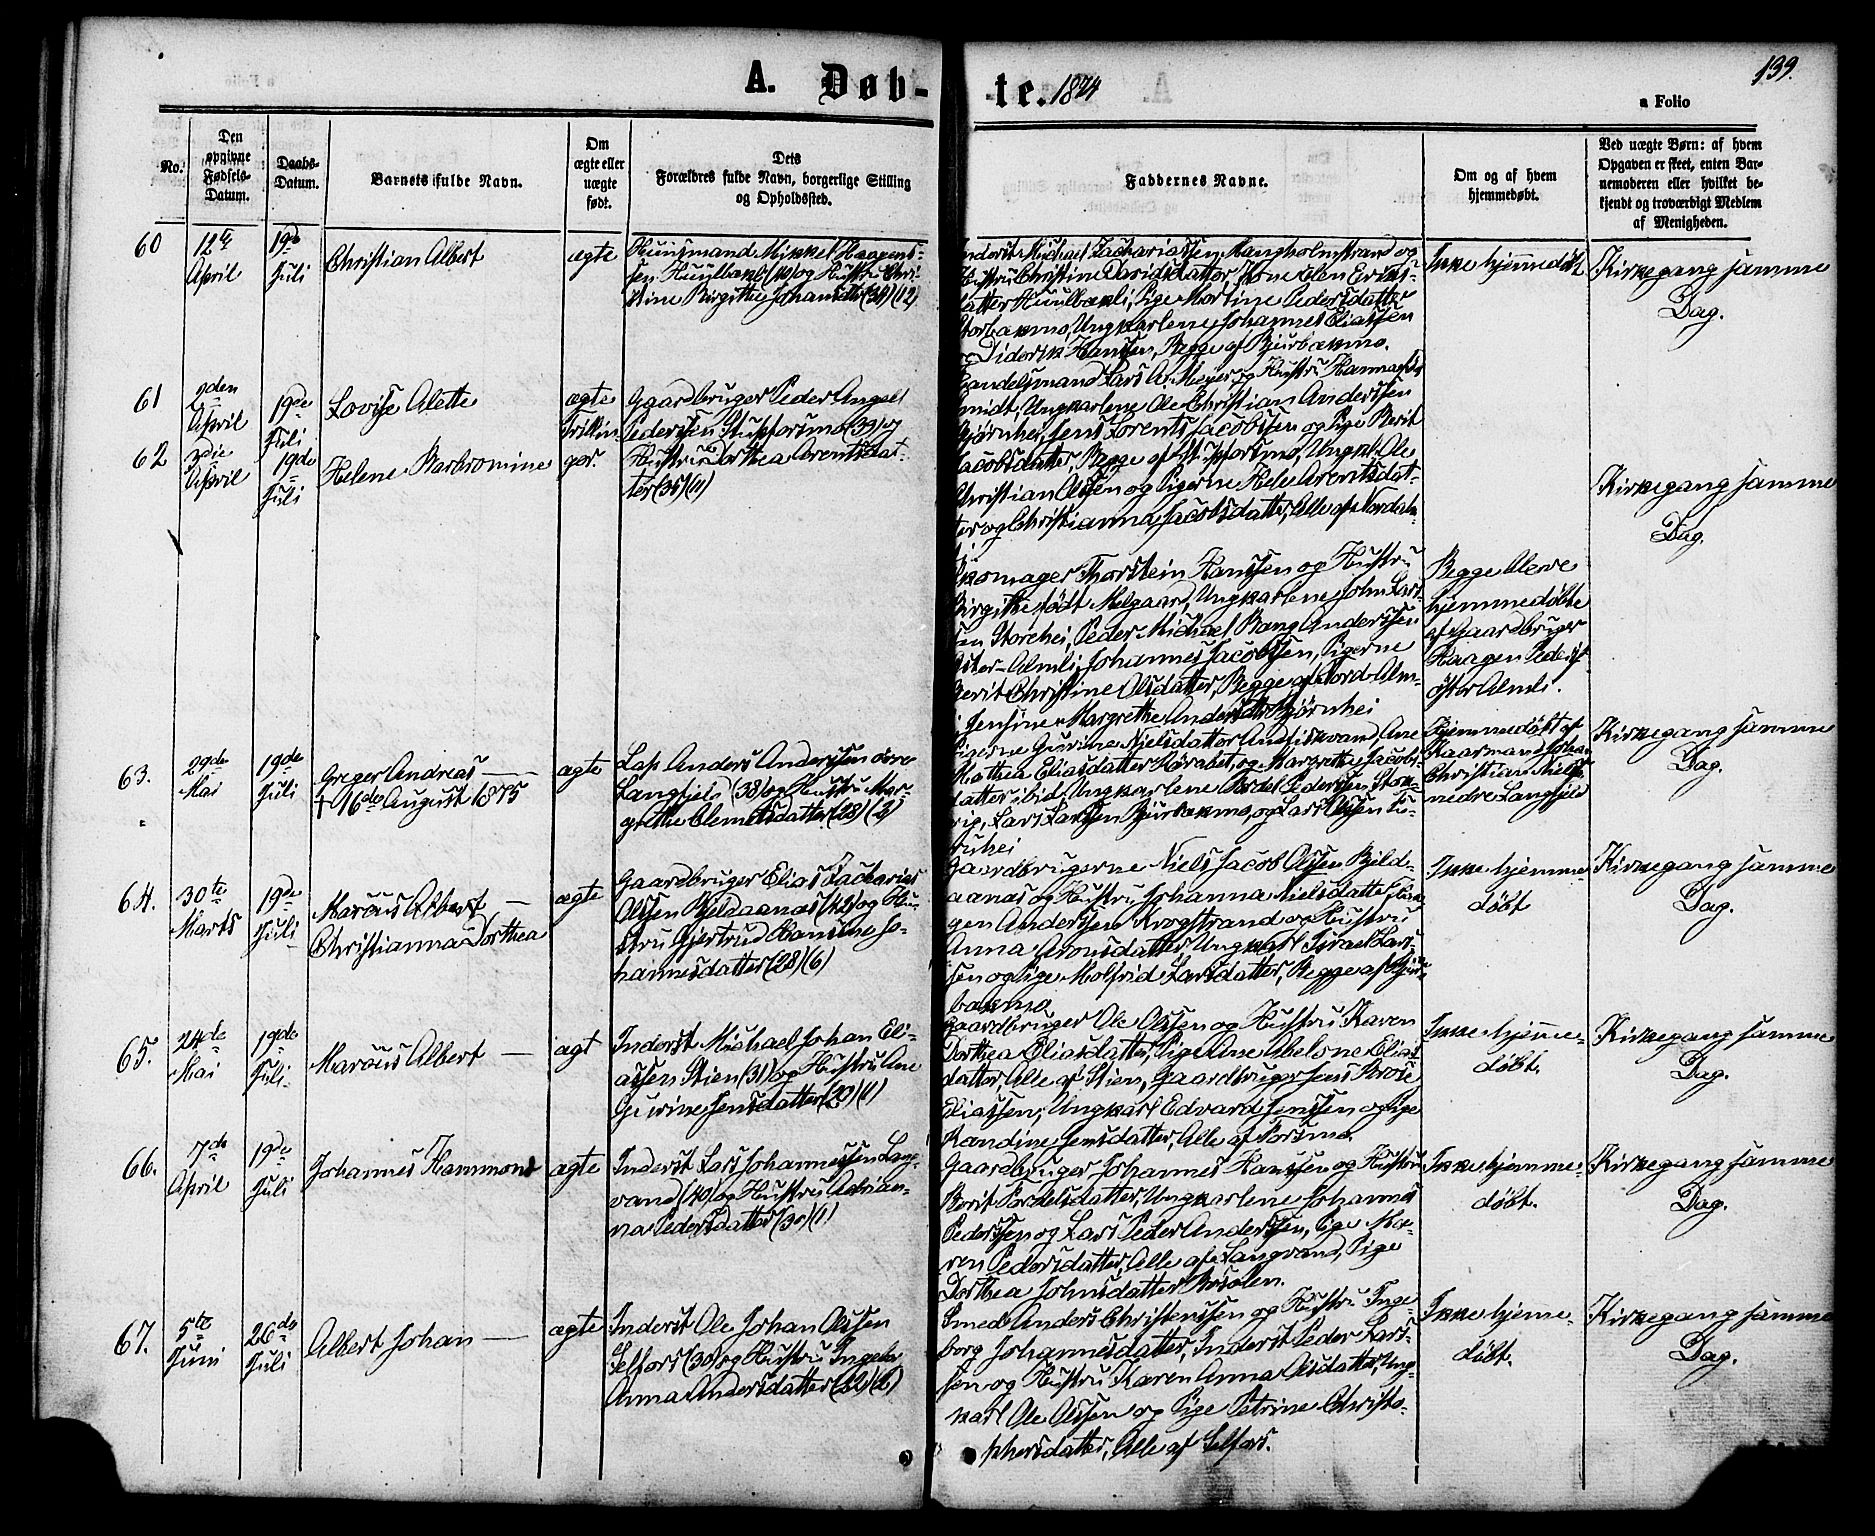 139.
A. Døb-te. 1874
a Folio
No.
Den opgivne Fødsels-Datum.
Daabs-Datum.
Barnets fulde Navn.
Om ægte eller uægte født.
Dets Forældres fulde Navn, borgerlige Stilling og Opholdssted.
Faddernes Navne.
Om og af hvem hjemmedøbt.
Ved uægte Børn: af hvem Opgaven er skeet, enten Barnemoderen eller hvilket bekjendt og troværdigt Medlem af Menigheden.
60
12te April
19de Juli
Christian Albert
ægte
Huusmand Mikkel Haagens-
sen Huulbækli (40) og Hustru Chri-
stine Birgitte Johansdtr (34) (12)
Inderst Michael Zachariassen, Langholmstrand og
Hustru Christine Davidsdatter, Kone Elen Eriks-
datter Huulbækli, Pige Martine Pedersdatter
Storbækmo, Ungkarlene Johannes Eliassen
og Diderik Hanssen, Begge af Bjurbækmo.
Ikke hjemmedøbt
Kirkegang samme
Dag.
61
2den April
19de Juli
Lovise Alette
ægte
Trillin-
62
3die April
19de Juli
Helene Barbromine
ger.
Gaardbruger Peder Angell
Pederssen Stupforsmo (39) og
Hustru Dorthea Arentsdat-
ter (35) (11)
Handelsmand Lars A. Meyer og Hustru Hanna f.
Smidt, Ungkarlene Ole Christian Anderssen
Bjørnhei, Jens Lorents Jacobssen og Pige Berit
Jacobsdatter, Begge af Stupforsmo, Ungk. Ole
Christian Olssen og Pigerne Hele Arentsdat-
ter og Christianna Jacobsdatter, Alle af Nordalm-
li
Kirkegang samme
Dag.
Skomager Thorstein Hanssen og Hustru
Birgitte født Melgaard, Ungkarlene John Lars-
sen Storehei, Peder Michael Bang Anderssen
Øster-Almli, Johannes Jacobssen, Pigerne
Berit Christine Olsdatter, Begge af Nord-Alm-
li, Jensine Margrethe Andersdtr Bjørnhei
Begge Elever
hjemmedøbte
af Gaardbruger
Haagen Peders.
Øster Almli.
63.
29de Mai
19de Juli
Greger Andreas
† 16de August 1875
ægte
Lap Anders Anderssen øvre
Langfjeld (38) og Hustru Mar-
grethe Clemetsdatter (28) (2)
Pigerne Gurine Nielsdatter Andfiskvand, Ane
Mathea Eliasdatter Kårabet, og Margrethe Jacobs-
datter ibid, Ungkarlene Peder Pederssen Stok-
vig, Lars Larssen Bjurbækmo, og Lars Olssen Tu-
ruhei
Hjemmedøbt af
Gaardmand Johan
Christian Nielss.
nedre Langfjeld
Kirkegang samme
Dag.
64.
30te Marts
19de Juli
Marcus Albert
Christianna Dorthea
ægte
Gaardbruger Elias Zacharias
Olssen Bjeldaanæs (42) og Hu-
stru Gjertrud Hansine Jo-
hannesdatter (28) (6)
Gaardbrugerne Niels Jacob Olssen Bjeld-
aanæs og Hustru Johanna Nielsdatter, Haa-
gen Anderssen Krogstrand og Hustru
Anna Aronsdatter, Ungkarl Israel Lars-
sen og Pige Molfrid Larsdatter, Begge af Bjur-
bækmo
Ikke hjemme-
døbt
Kirkegang samme
Dag.
65.
24de Mai
19de Juli
Marcus Albert
ægt
Inderst Michael Johan Eli-
assen Stien (31) og Hustru Ane
Gurine Jensdatter (29) (1)
Gaardbruger Ole Olssen og Hustru Karen
Dorthea Eliasdatter, Pige Ane Abelone Elias-
datter, Alle af Stien, Gaardbruger Jens Brose
Eliassen, Ungkarl Edvard Jenssen og Pige
Randine Jensdatter, Alle af Forsmo.
Ikke hjemme-
døbt.
Kirkegang samme
Dag.
66.
7de April
19de Juli
Johannes Hammond
ægte
Inderst Lars Johannessen Lang-
vand (40) og Hustru Adrian-
na Pedersdatter (30) (1)
Gaardbruger Johannes Hanssen og Hustru
Berit Pedersdatter, Ungkarlene Johannes
Pederssen og Lars Peder Anderssen, Pige Ma-
ren Pedersdatter, Alle af Langvand, Pige
Dorthea Johnsdatter Røsolen.
Ikke hjemme-
døbt.
Kirkegang samme
Dag.
67.
5te Juni
26de Juli
Albert Johan
ægte
Inderst Ole Johan Olssen
Selfors (30) og Hustru Ingebor
Anna Andersdatter (22) (2)
Smed Anders Christenssen og Hustru Inge-
borg Johannesdatter, Inderst Peder Lars-
sen og Hustru Karen Anna Olsdatter, Ung-
karl Ole Olssen og Pige Petrine Christo-
phersdatter, Alle af Selfors.
Ikke hjeme-
døbt.
Kirkegang samme
Dag.